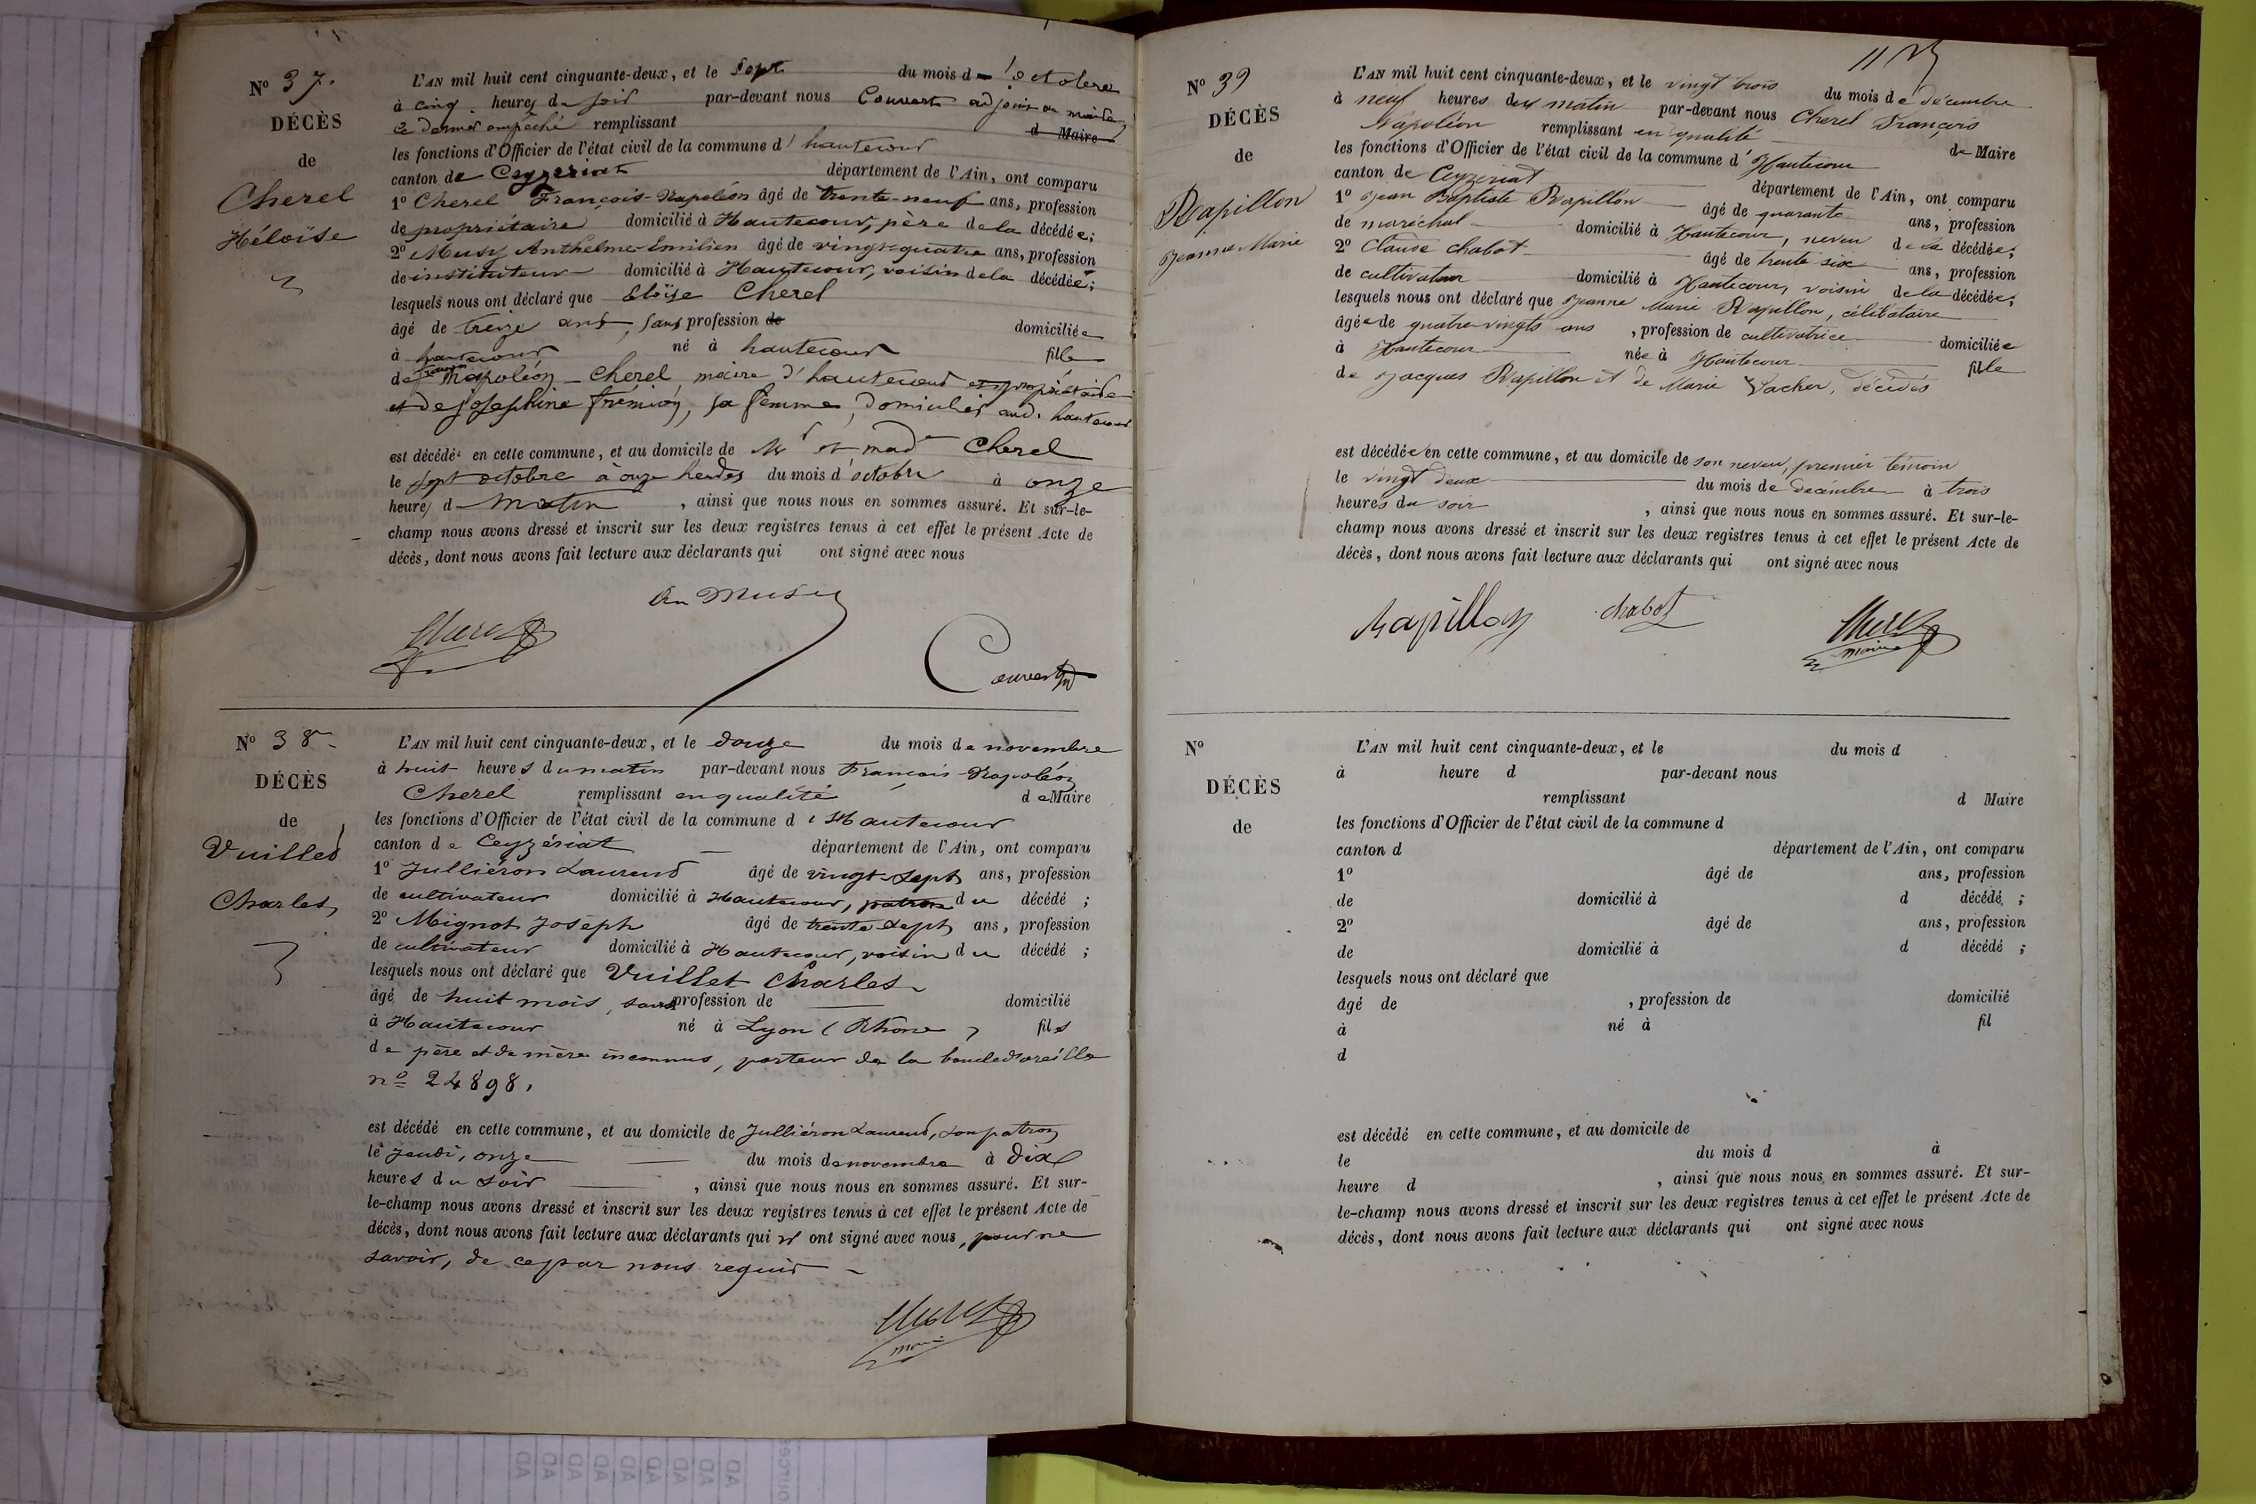 N° 37.
DÉCÈS
de
Cherel
Héloïse
L'AN mil huit cent cinquante-deux, et le Sept du mois d'octobre
à cinq heures du soir par-devant nous Couvert adjoint au maire,
ce dernier empêché remplissant d Maire
les fonctions d'Officier de l'état civil de la commune d'hautecour
canton de Ceyzeriat département de l'Ain, ont comparu
1° Cherel François-Napoléon âgé de trente-neuf ans, profession
de propriétaire domicilié à Hautecour, père de la décédée;
2° Musy Anthelme-Emilien âgé de vingt-quatre ans, profession
de instituteur domicilié à Hautecour, voisin de la décédée;
lesquels nous ont déclaré que Eloïse Cherel
âgé de treize ans, sans profession de domiciliée
à hautecour né à hautecour fille
de Napoléon Cherel maire d'hautecour et propriétaire
et de Josephine frémion, sa femme, domiciliés aud. hautecour
est décédée en cette commune, et au domicile de Mr et made Cherel
le sept octobre à onze heures du mois d'octobre à onze
heures d matin, ainsi que nous nous en sommes assuré. Et sur-le-
champ nous avons dressé et inscrit sur les deux registres tenus à cet effet le présent Acte de
décès, dont nous avons fait lecture aux déclarants qui ont signé avec nous
Cherel An Musy
Couvert
N° 38
DÉCÈS
de
Vuillet
Charles
L'AN mil huit cent cinquante-deux, et le douze du mois de novembre
à huit heures du matin par-devant nous François-Napoléon
Cherel remplissant en qualité de Maire
les fonctions d'Officier de l'état civil de la commune d'Hautecour
canton de Ceyzériat département de l'Ain, ont comparu
1° Julliéron Laurent âgé de vingt-sept ans, profession
de cultivateur domicilié à Hautecour, patron du décédé;
2° Mignot Joseph âgé de trente sept ans, profession
de cultivateur domicilié à Hautecour, voisin du décédé;
lesquels nous ont déclaré que Vuillet Charles
âgé de huit mois, sans profession de domicilié
à Hautecour né à Lyon (Rhône) fils
de père et de mère inconnus, porteur de la boucle d'oreille
n° 24898,
est décédé en cette commune, et au domicile de Julliéron Laurent, son patron
le jeudi, onze du mois de novembre à dix
heures du soir, ainsi que nous nous en sommes assuré. Et sur-
le-champ nous avons dressé et inscrit sur les deux registres tenus à cet effet le présent Acte de
décès, dont nous avons fait lecture aux déclarants qui n'ont signé avec nous, pour ne
savoir, de ce par nous requis
Cherel
maire
N° 39
DÉCÈS
de
Rapillon
Jeanne Marie
L'AN mil huit cent cinquante-deux, et le vingt trois du mois de décembre
à neuf heures du matin par-devant nous Cherel François
Napoléon remplissant en qualité de Maire
les fonctions d'Officier de l'état civil de la commune d'Hautecour
canton de Ceyzeriat département de l'Ain, ont comparu
1° Jean Baptiste Rapillon âgé de quarante ans, profession
de maréchal domicilié à Hautecour, neveu de la décédée;
2° Claude chabot âgé de trente six ans, profession
de cultivateur domicilié à Hautecour, voisin de la décédée;
lesquels nous ont déclaré que Jeanne Marie Rapillon, célibataire
âgée de quatre vingts ans, profession de cultivatrice domiciliée
à Hautecour née à Hautecour fille
de Jacques Rapillon et de Marie Vacher, décédés
est décédée en cette commune, et au domicile de son neveu, premier témoin
le vingt deux du mois de decembre à trois
heures du soir, ainsi que nous nous en sommes assuré. Et sur-le-
champ nous avons dressé et inscrit sur les deux registres tenus à cet effet le présent Acte de
décès, dont nous avons fait lecture aux déclarants qui ont signé avec nous
Rapillon chabot Cherel
maire
N°
DÉCÈS
de
L'AN mil huit cent cinquante-deux, et le du mois d
à heure d par-devant nous
remplissant d Maire
les fonctions d'Officier de l'état civil de la commune d
canton d département de l'Ain, ont comparu
1° âgé de ans, profession
de domicilié à d décédé ;
2° âgé de ans, profession
de domicilié à d décédé ;
lesquels nous ont déclaré que
âgé de , profession de domicilié
à né à fil
d
est décédé en cette commune, et au domicile de
le du mois d à
heure d , ainsi que nous nous en sommes assuré. Et sur-
le-champ nous avons dressé et inscrit sur les deux registres tenus à cet effet le présent Acte de
décès, dont nous avons fait lecture aux déclarants qui ont signé avec nous